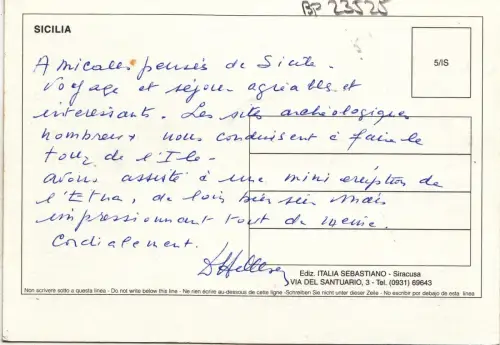 BP 23525
SICILIA
5/IS
Amicales pensés de Sicile.
Voyage et séjour agréables et
intéressants. Les sites archéologiques
nombreux nous conduisent à faire le
tour de l'Ile.
avons assisté à une mini eruption de
l'Etna, de loin bien sûr mais
impressionnant tout de meme.
Cordialement.
Ediz. ITALIA SEBASTIANO - Siracusa
VIA DEL SANTUARIO, 3 - Tel. (0931) 69643
Non scrivere sotto a questa linea - Do not write below this line - Ne rien écrire au-dessous de cette ligne -Schreiben Sie nicht unter dieser Zeile - No escribir por debajo de esta linea